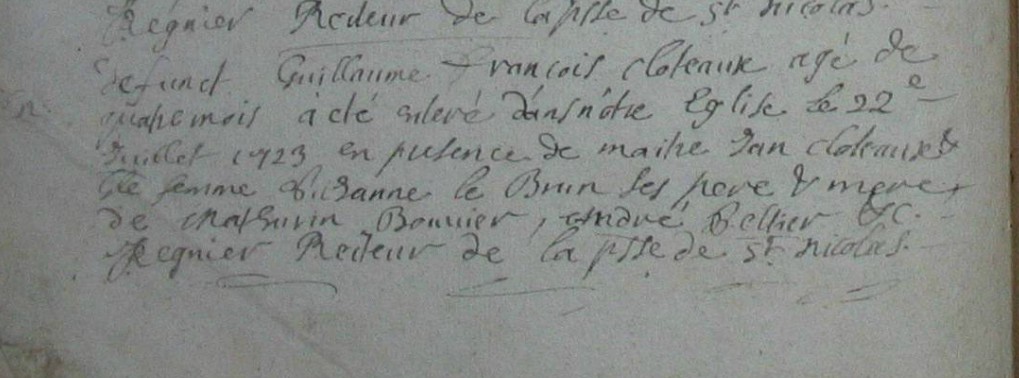 Regnier Recteur de la psse de st nicolas.
defunct Guillaume François cloteaux agé de
quatre mois a eté enteré dans nôtre Eglise le 22e
Juillet 1723 en presence de maitre Jan cloteaux &
de femme Suzanne le Brun ses pere & mere
de Mathurin Bouvier, André Peltier &c.
Regnier Recteur de la psse de st nicolas.